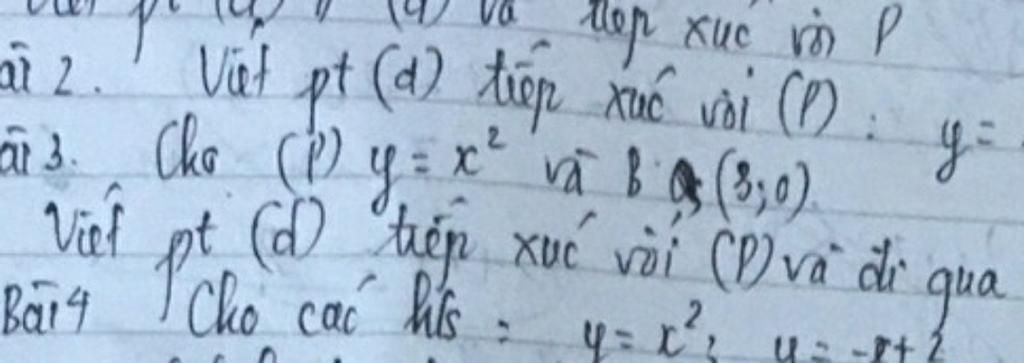 pt (d) // (d) và tiếp xúc với P
ài 2. Viết pt (d) tiếp xúc với (P): y =
ài 3. Cho (P) y = x² và B (3;0)
Viết pt (d) tiếp xúc với (P) và đi qua
Bài 4 Cho các h/s : y = x²; y = -x + 2